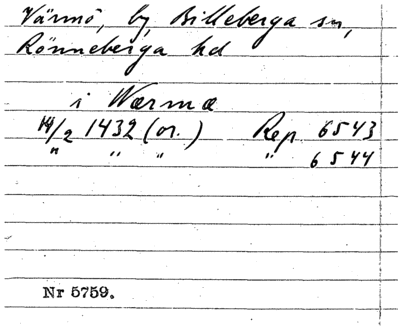 Värmö, by, Billeberga sn,
Rönneberga hd
i Wærmæ
14/2 1432 (or.) Rep 6543
" " " " 6544
Nr 5759.